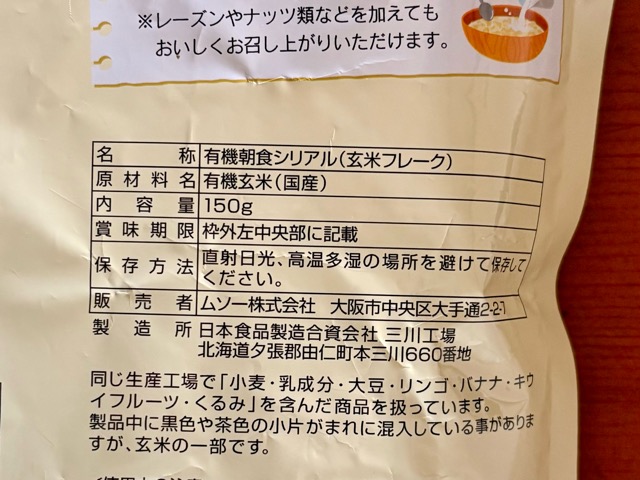 ※レーズンやナッツ類などを加えても
おいしくお召し上がりいただけます。
名称 有機朝食シリアル(玄米フレーク)
原材料名 有機玄米(国産)
内容量 150g
賞味期限 枠外左中央部に記載
保存方法 直射日光、高温多湿の場所を避けて保存して
ください。
販売者 ムソー株式会社 大阪市中央区大手通2-2-1
製造所 日本食品製造合資会社 三川工場
北海道夕張郡由仁町本三川660番地
同じ生産工場で「小麦・乳成分・大豆・リンゴ・バナナ・キウ
イフルーツ・くるみ」を含んだ商品を扱っています。
製品中に黒色や茶色の小片がまれに混入している事がありま
すが、玄米の一部です。